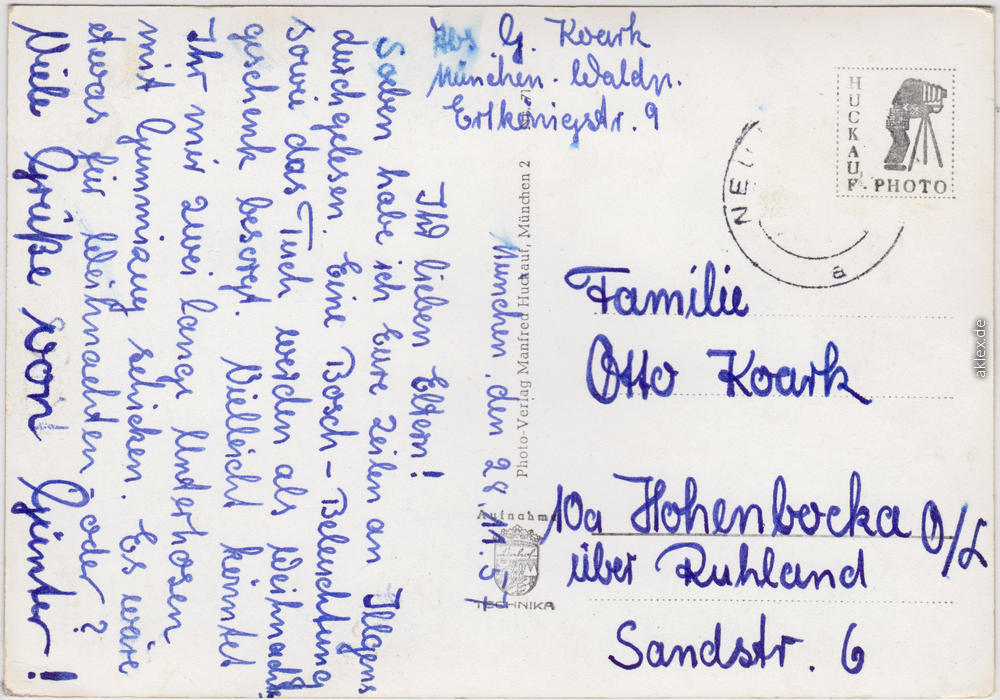 Abs G. Kvark
München-Waldp.
Erlkönigstr. 9
München, den 28.11.57
Ihr lieben Eltern!
Soeben habe ich Eure Zeilen an Illgens
durchgelesen. Eine Bosch-Beleuchtung
sowie das Tuch werden als Weihnachts
geschenk besorgt. Vielleicht könntet
Ihr mir zwei lange Underhosen
mit Gummizug schicken. Es wäre
etwas für Weihnachten, oder?
Viele Grüße von Günter!
Photo-Verlag Manfred Huckauf, München 2
Aufnahme
TECHNIKA
HUCKAUF-PHOTO
NEU
a
Familie
Otto Kvark
10a Hohenbocka O/L
über Ruhland
Sandstr. 6
aklex.de